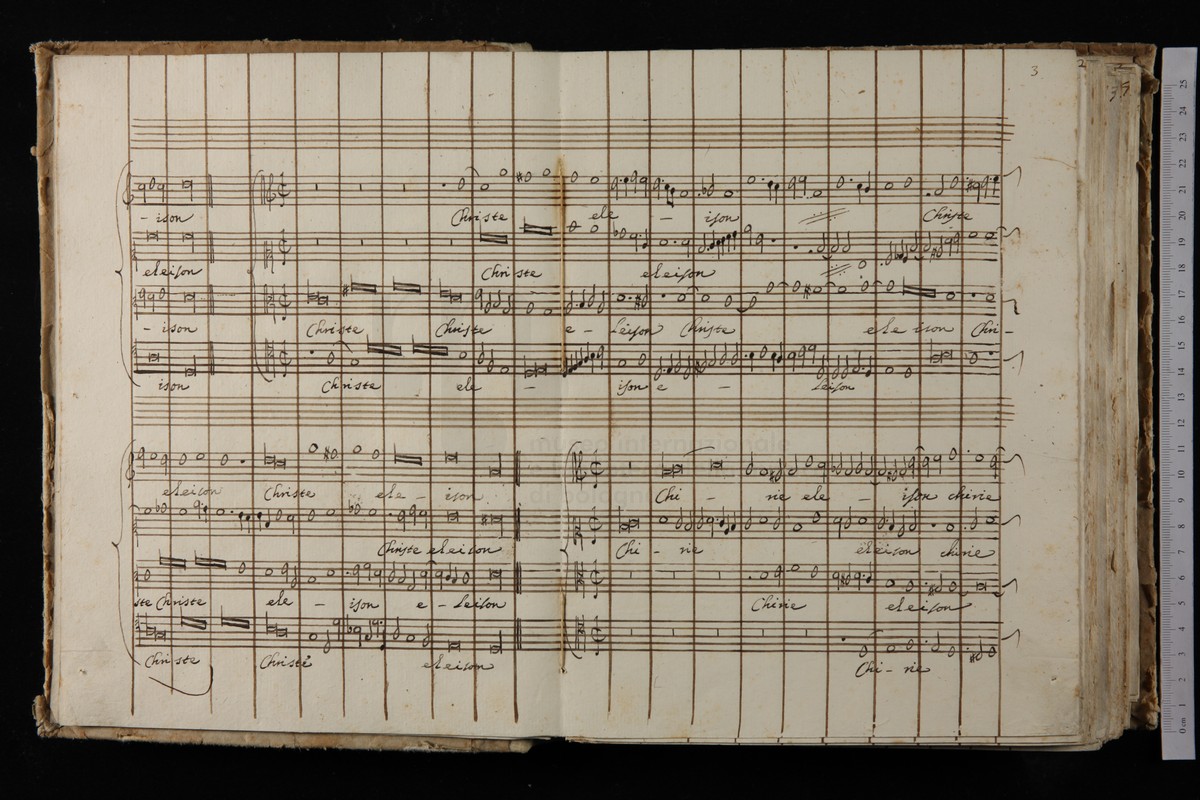 3
35
- ison Christe ele - ison Christe
eleison Christe eleison
- ison Christe Christe e - leison Christe eleison Chri-
ison Christe ele - ison e - leison
eleison Christe ele - ison Chi - rie ele ison chirie
Christe eleison Chi - rie eleison chirie
ste Christe ele - ison e - leison Chirie eleison
Christe Christe eleison Chi - rie
museo internazionale
di bologna
0 cm 1 2 3 4 5 6 7 8 9 10 11 12 13 14 15 16 17 18 19 20 21 22 23 24 25